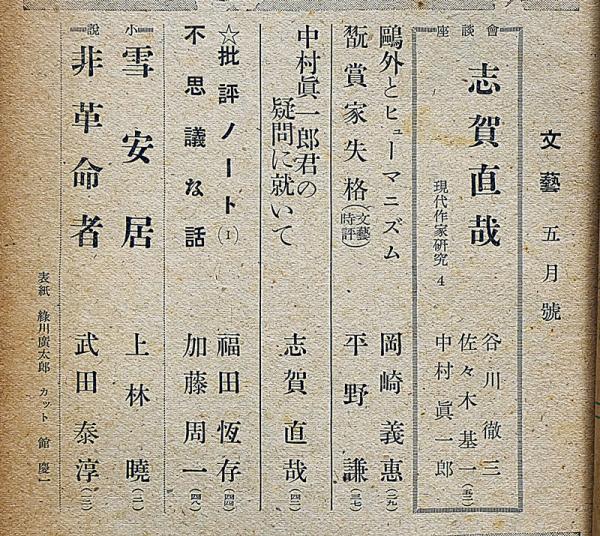 文藝 五月號
座談會
志賀直哉
現代作家研究 4
谷川徹三
佐々木基一(五二)
中村眞一郎
鷗外とヒューマニズム 岡崎義惠(二九)
翫賞家失格(文藝時評) 平野謙(三七)
中村眞一郎君の
疑問に就いて 志賀直哉(四二)
☆批評ノート(1) 福田恆存(四四)
不思議な話 加藤周一(四八)
小説
雪安居 上林曉(二)
非革命者 武田泰淳(一三)
表紙 綠川廣太郎 カット 館慶一